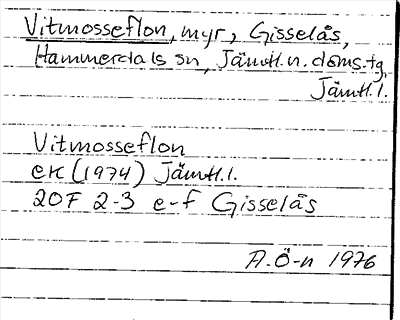 Vitmosseflon, myr, Gisselås,
Hammerdals sn, Jämtl. n. doms.tg,
Jämtl. l.
Vitmosseflon
ek (1974) Jämtl. l.
20F 2-3 e-f Gisselås
A. Ö-n 1976